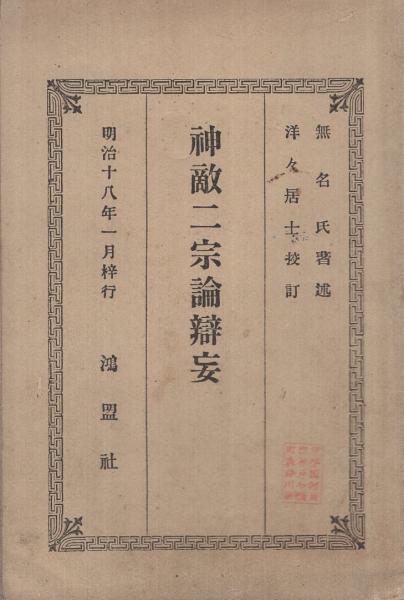 無名氏著述
洋々居士挍訂
神敵二宗論辯妄
明治十八年一月梓行
鴻盟社